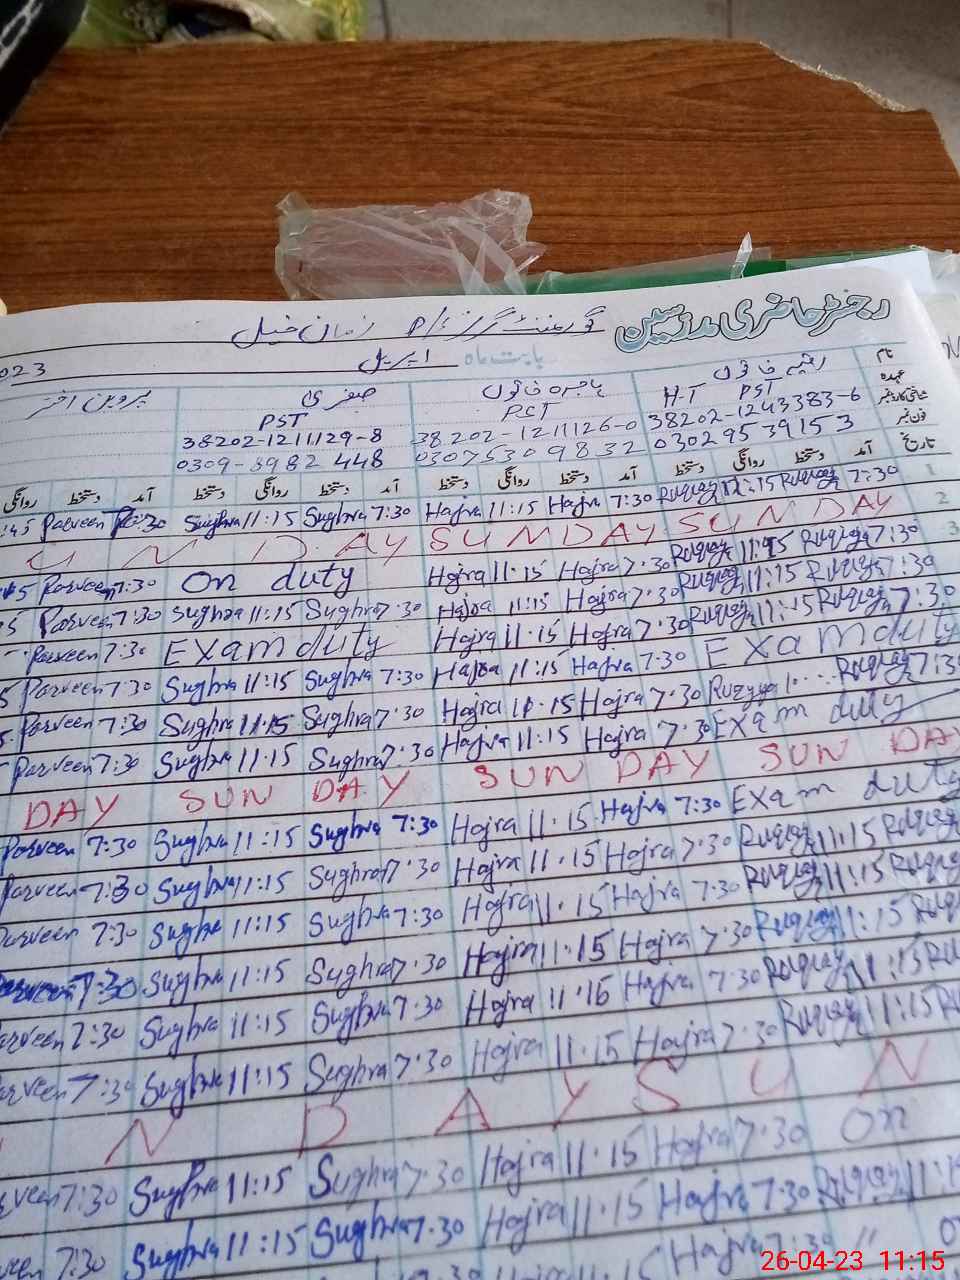 رجسٹر حاضری مدرسین گورنمنٹ گرلز زمان خیل
بابت ماہ اپریل 023
نام رقیہ خاتون ہاجرہ خاتون صغریٰ پروین اختر
عہدہ H-T PST PST PST
شناختی کارڈ نمبر 38202-1243383-6 38202-1211126-0 38202-1211129-8
فون نمبر 03029539153 03075309832 0309-8982448
تاریخ آمد دستخط روانگی دستخط آمد دستخط روانگی دستخط آمد دستخط روانگی دستخط آمد دستخط روانگی
1 :45 Parveen 7:30 Sughra 11:15 Sughra 7:30 Hajra 11:15 Hajra 7:30 Ruqyya 11:15 Ruqyya 7:30
2 U N D A Y SUNDAY SUNDAY
3 45 Parveen 7:30 On duty Hajra 11:15 Hajra 7:30 Ruqyya 11:15 Ruqyya 7:30
5 Parveen 7:30 Sughra 11:15 Sughra 7:30 Hajra 11:15 Hajra 7:30 Ruqyya 11:15 Ruqyya 7:30
Parveen 7:30 Exam duty Hajra 11:15 Hajra 7:30 Ruqyya 11:15 Ruqyya 7:30
5 Parveen 7:30 Sughra 11:15 Sughra 7:30 Hajra 11:15 Hajra 7:30 Exam duty
5 Parveen 7:30 Sughra 11:15 Sughra 7:30 Hajra 11:15 Hajra 7:30 Ruqyya 1..... Ruqyya 7:3
5 Parveen 7:30 Sughra 11:15 Sughra 7:30 Hajra 11:15 Hajra 7:30 Exam duty
DAY SUNDAY SUNDAY SUNDAY
Parveen 7:30 Sughra 11:15 Sughra 7:30 Hajra 11:15 Hajra 7:30 Exam duty
Parveen 7:30 Sughra 11:15 Sughra 7:30 Hajra 11:15 Hajra 7:30 Ruqyya 11:15 Ruqyya
Parveen 7:30 Sughra 11:15 Sughra 7:30 Hajra 11:15 Hajra 7:30 Ruqyya 11:15 Ruqyya
Parveen 7:30 Sughra 11:15 Sughra 7:30 Hajra 11:15 Hajra 7:30 Ruqyya 11:15 Ruqy
arveen 7:30 Sughra 11:15 Sughra 7:30 Hajra 11:16 Hajra 7:30 Ruqyya 11:15 Ru
arveen 7:30 Sughra 11:15 Sughra 7:30 Hajra 11:15 Hajra 7:30 Ruqyya 11:15 R
N D A Y S U N
veen 7:30 Sughra 11:15 Sughra 7:30 Hajra 11:15 Hajra 7:30 On
veen 7:30 Sughra 11:15 Sughra 7:30 Hajra 11:15 Hajra 7:30 Ruqyya 11:1
Hajra 7:30 "
26-04-23 11:15